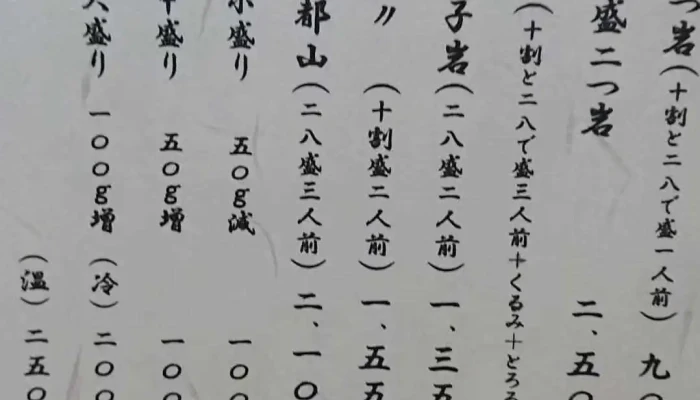 つ岩(十割と二八で盛一人前) 九〇
盛二つ岩 二、五〇
(十割と二八で盛三人前+くるみ+とろろ
子岩(二八盛二人前) 一、三五
〃 (十割盛二人前) 一、五五
都山(二八盛三人前) 二、一〇
小盛り 五〇g減 一〇〇
中盛り 五〇g増 一〇〇
大盛り 一〇〇g増 (冷) 二〇〇
(温) 二五〇